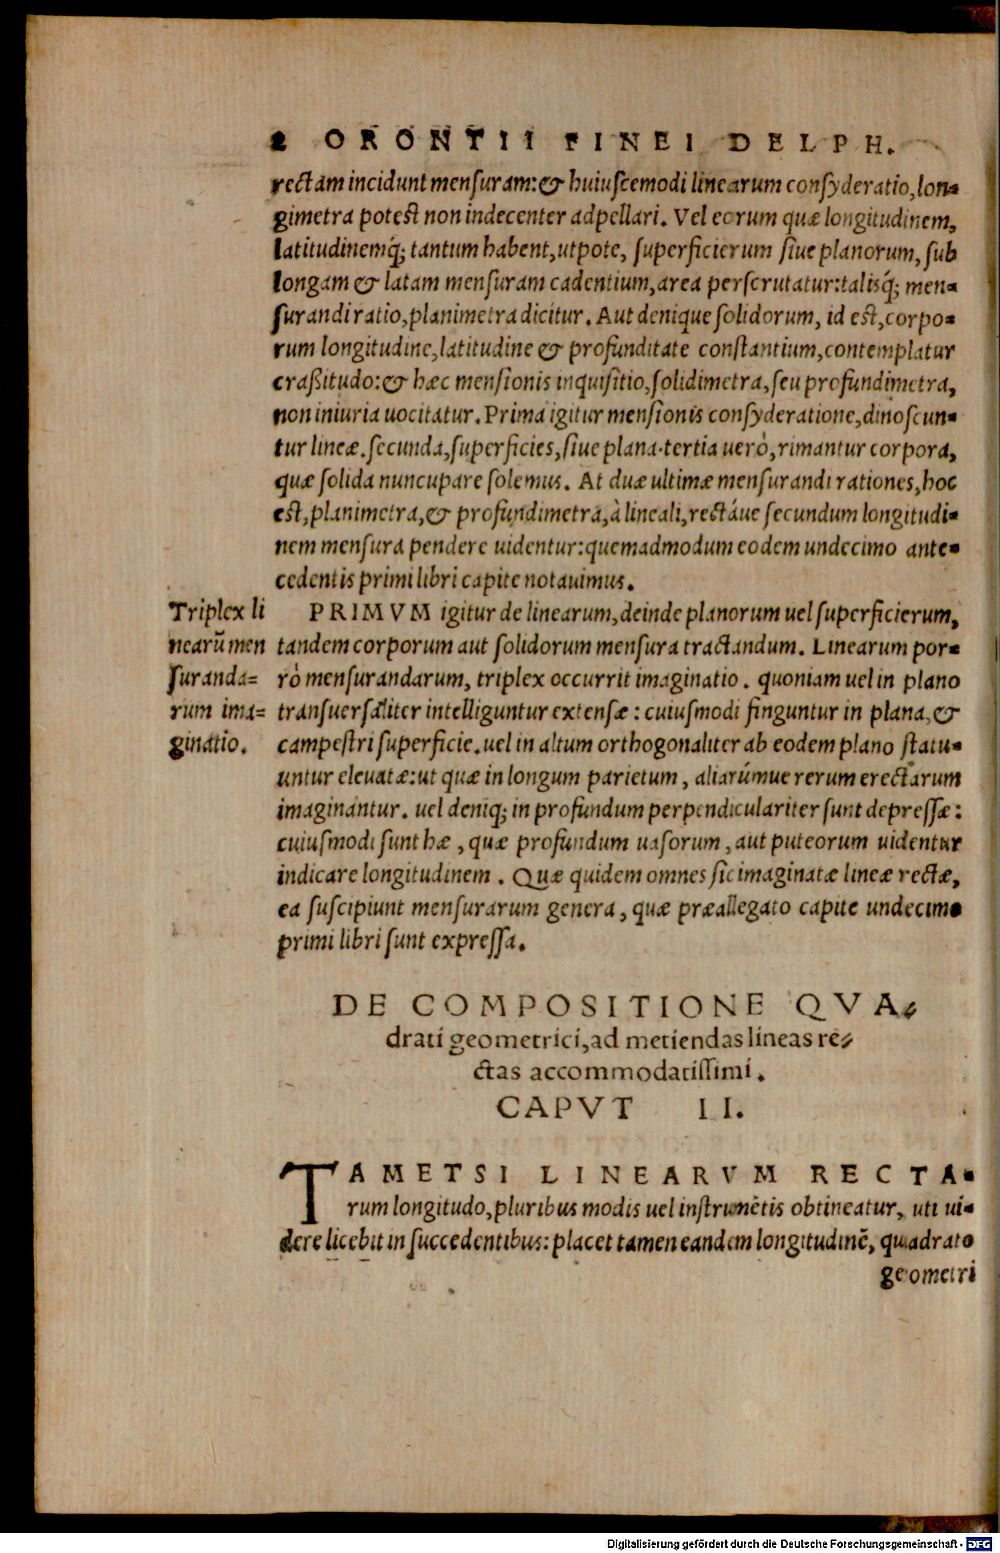 2 ORONTII FINEI DELPH.
rectam incidunt mensuram: & huiuscemodi linearum consyderatio, lon-
gimetra potest non indecenter adpellari. Vel eorum quæ longitudinem,
latitudinemq́; tantum habent, utpote, superficierum siue planorum, sub
longam & latam mensuram cadentium, area perscrutatur: talisq́; men-
surandi ratio, planimetra dicitur. Aut denique solidorum, id est, corpo-
rum longitudine, latitudine & profunditate constantium, contemplatur
craßitudo: & hæc mensionis inquisitio, solidimetra, seu profundimetra,
non iniuria uocitatur. Prima igitur mensionis consyderatione, dinoscun-
tur lineæ. secunda, superficies, siue plana. tertia uerò, rimantur corpora,
quæ solida nuncupare solemus. At duæ ultimæ mensurandi rationes, hoc
est, planimetra, & profundimetra, à lineali, rectáue secundum longitudi-
nem mensura pendere uidentur: quemadmodum eodem undecimo ante-
cedentis primi libri capite notauimus.
Triplex li
nearũ men
suranda=
rum ima=
ginatio.
PRIMVM igitur de linearum, deinde planorum uel superficierum,
tandem corporum aut solidorum mensura tractandum. Linearum por-
rò mensurandarum, triplex occurrit imaginatio. quoniam uel in plano
transuersaliter intelliguntur extensæ: cuiusmodi finguntur in plana, &
campestri superficie. uel in altum orthogonaliter ab eodem plano statu-
untur eleuatæ: ut quæ in longum parietum, aliarúmue rerum erectarum
imaginantur. uel deniq; in profundum perpendiculariter sunt depressæ:
cuiusmodi sunt hæ, quæ profundum uasorum, aut puteorum uidentur
indicare longitudinem. Quæ quidem omnes sic imaginatæ lineæ rectæ,
ea suscipiunt mensurarum genera, quæ præallegato capite undecimo
primi libri sunt expressa.
DE COMPOSITIONE QVA-
drati geometrici, ad metiendas lineas re-
ctas accommodatissimi.
CAPVT II.
TAMETSI LINEARVM RECTA-
rum longitudo, pluribus modis uel instrumẽtis obtineatur, uti ui-
dere licebit in succedentibus: placet tamen eandem longitudinẽ, quadrato
geometri
Digitalisierung gefördert durch die Deutsche Forschungsgemeinschaft - DFG